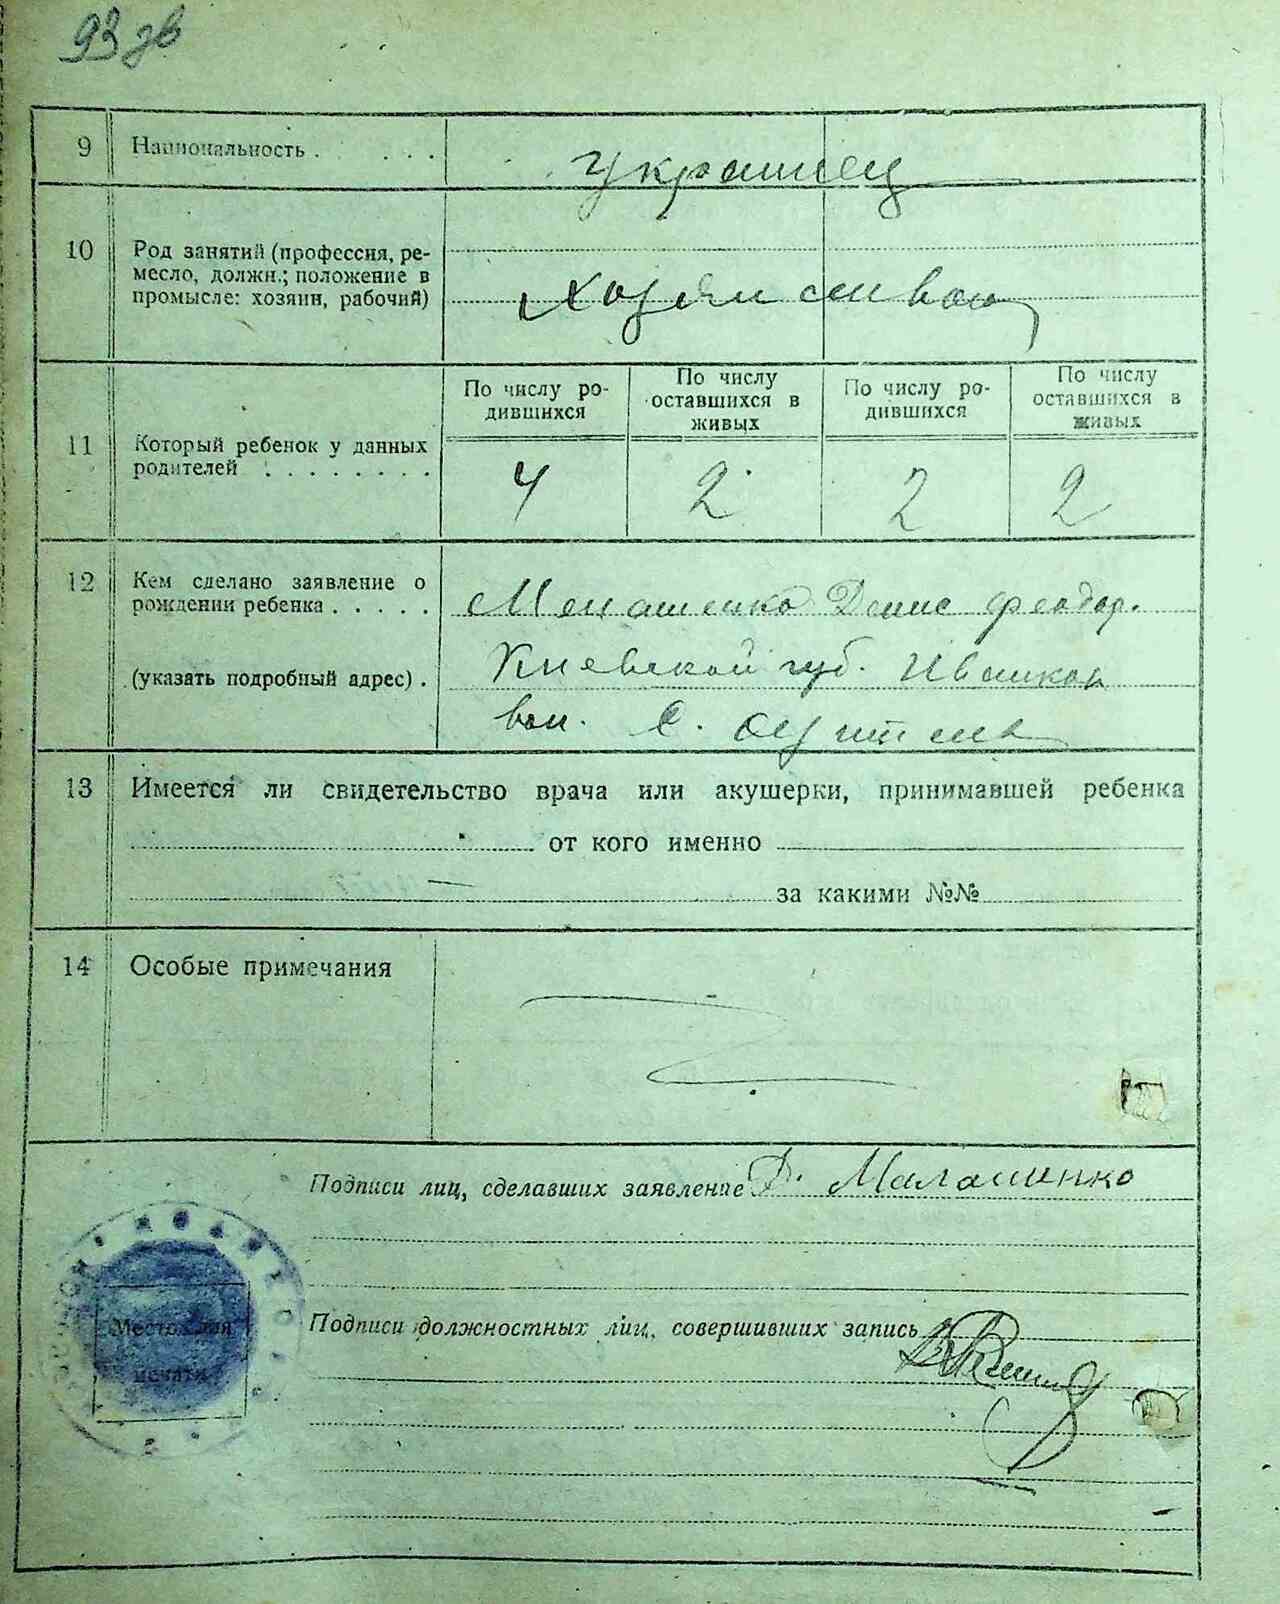 93 зв
9 Национальность . . . . .
украинец
10 Род занятий (профессия, ре-
месло, должн.; положение в
промысле: хозяин, рабочий)
11 Который ребенок у данных
родителей . . . . . . . .
По числу ро-
дившихся
По числу
оставшихся в
живых
По числу ро-
дившихся
По числу
оставшихся в
живых
4 2 2 2
12 Кем сделано заявление о
рождении ребенка . . . . .
(указать подробный адрес) .
Денис Феодор.
Киевской губ.
вол. с.
13 Имеется ли свидетельство врача или акушерки, принимавшей ребенка
от кого именно
за какими №№
14 Особые примечания
Подписи лиц, сделавших заявление Д. Малашенко
Место для
печати
Подписи должностных лиц, совершивших запись